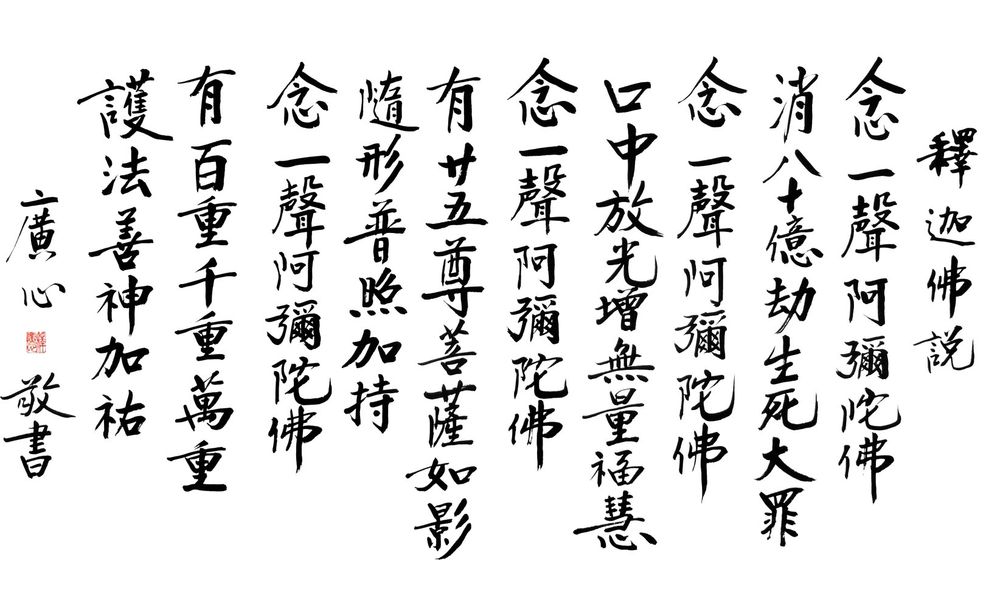 釋迦佛説
念一聲阿彌陀佛
消八十億劫生死大罪
念一聲阿彌陀佛
口中放光增無量福慧
念一聲阿彌陀佛
有廿五尊菩薩如影
隨形普照加持
念一聲阿彌陀佛
有百重千重萬重
護法善神加祐
廣心 敬書